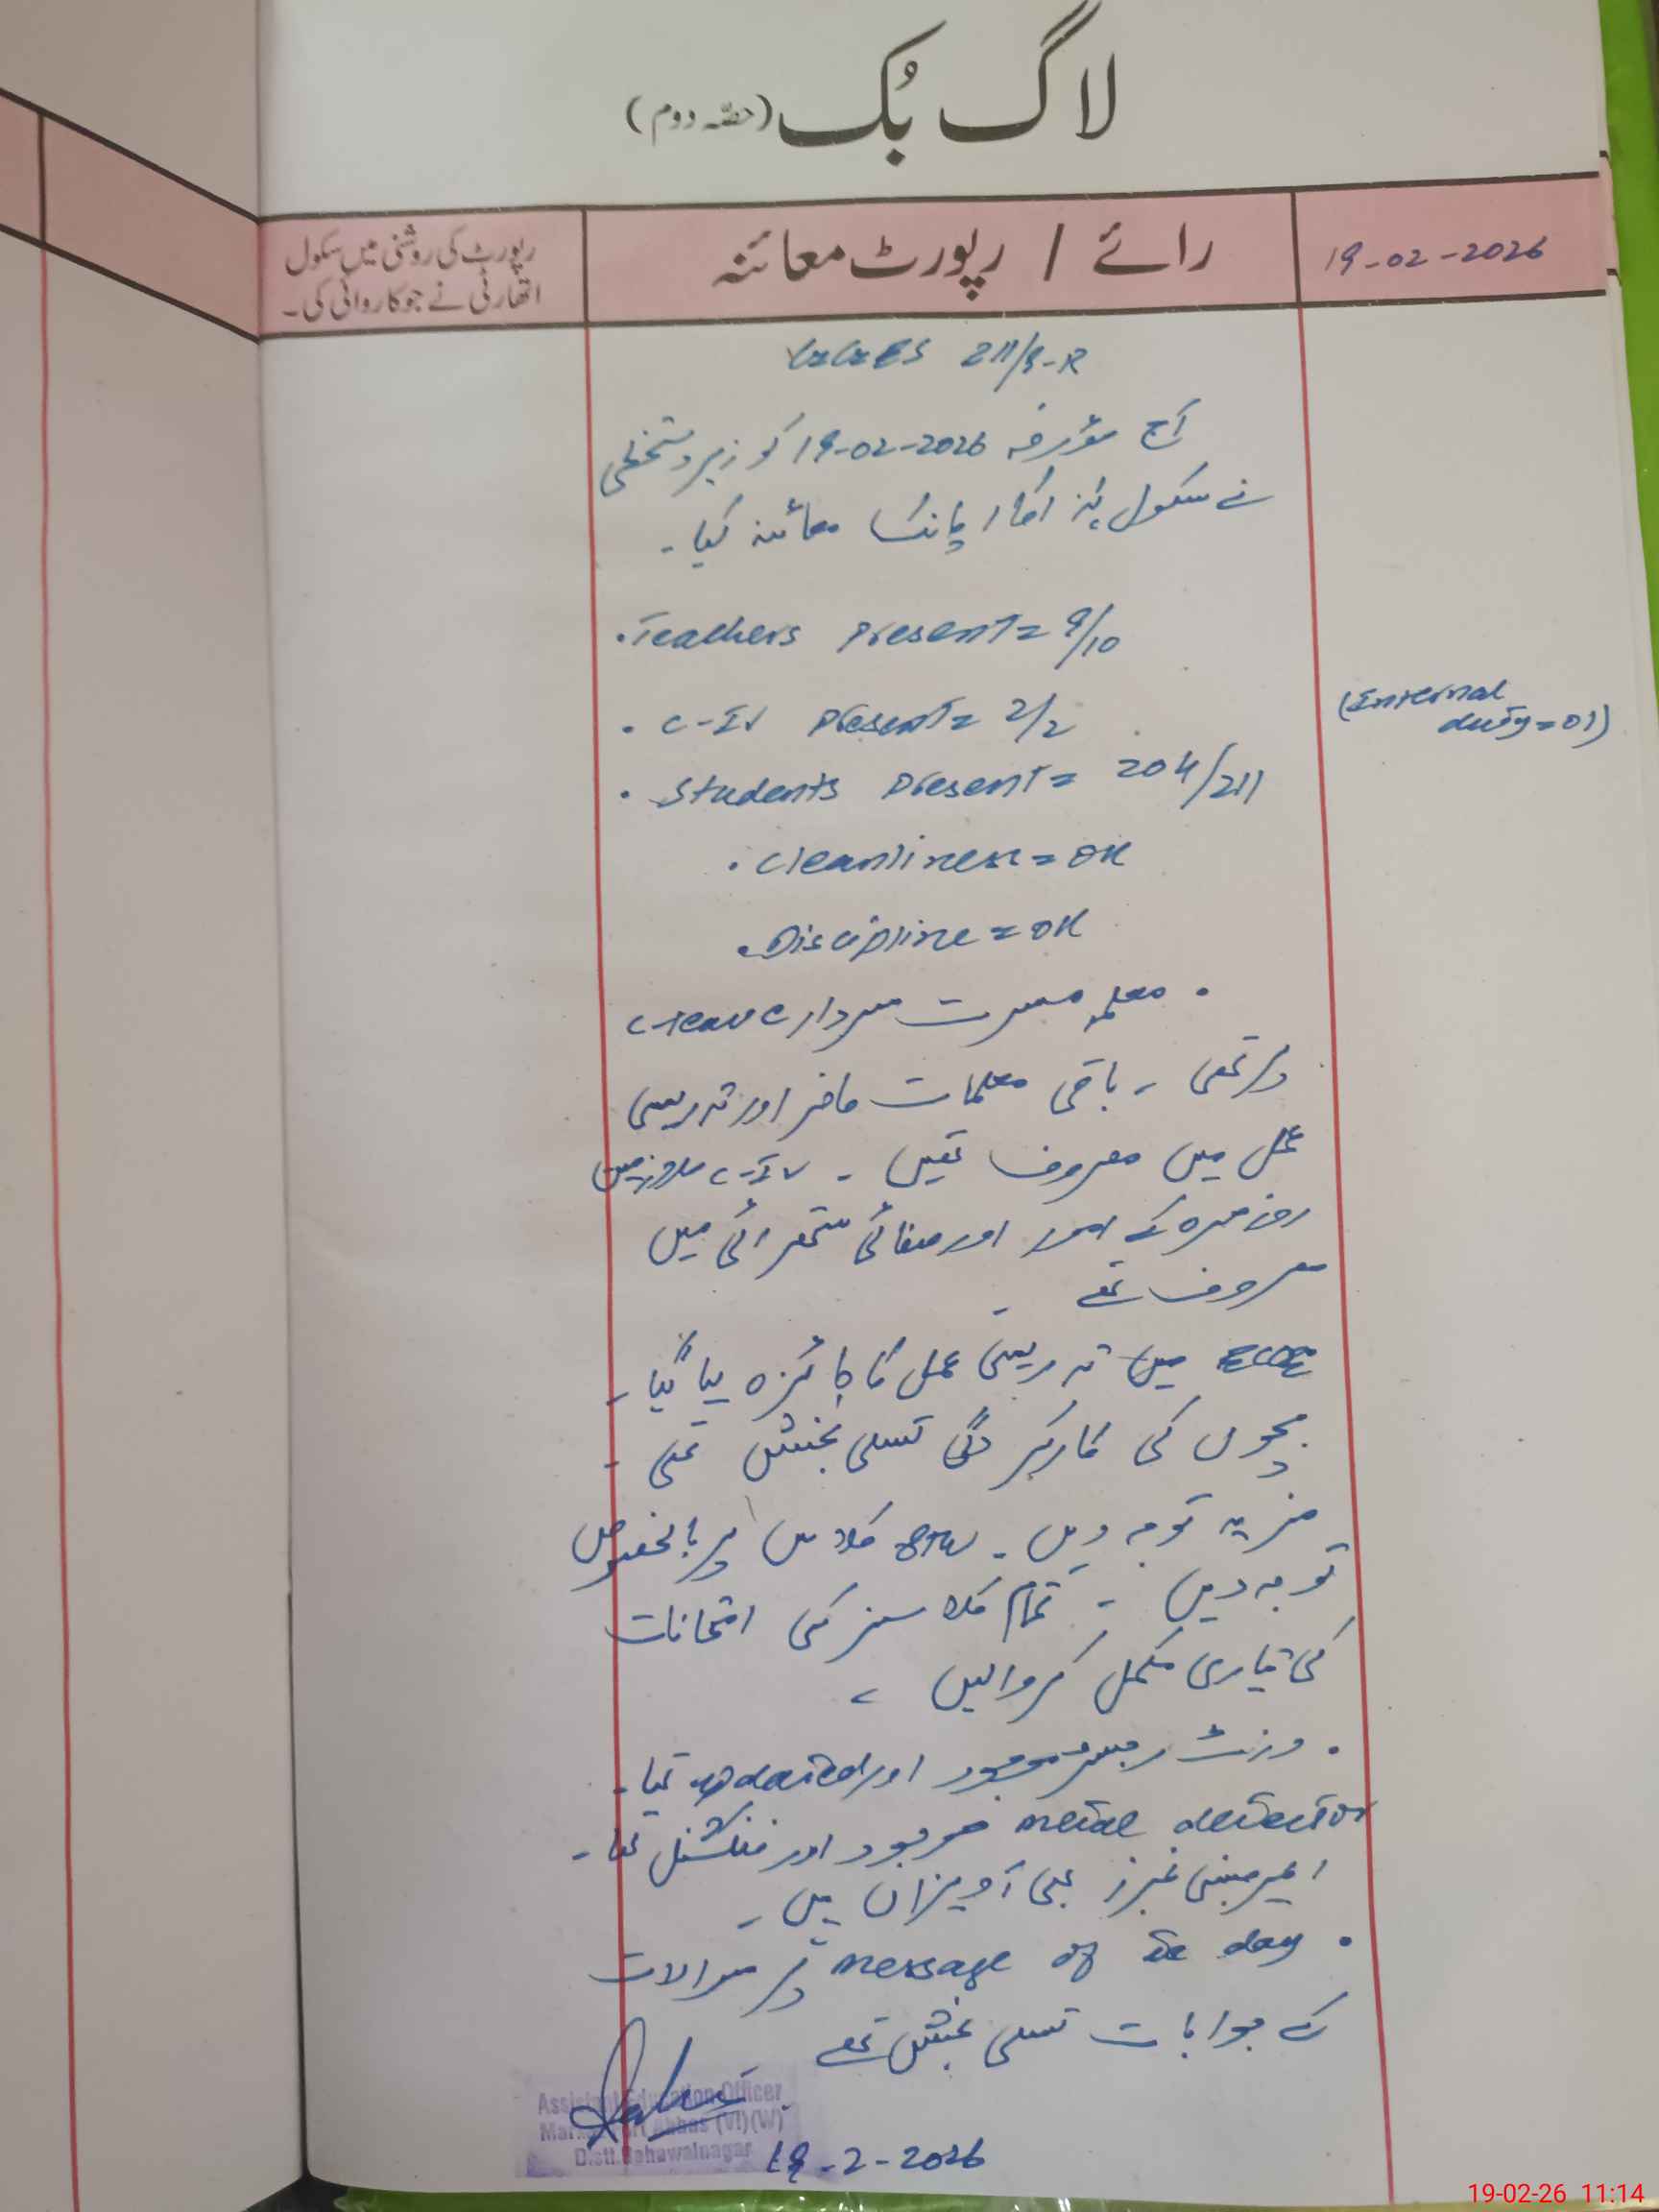 لاگ بُک (حصّہ دوم)
19-02-2026
رائے / رپورٹ معائنہ
رپورٹ کی روشنی میں سکول
اتھارٹی نے جو کاروائی کی۔
211/9-R
آج مؤرخہ 19-02-2026 کو زیر دستخطی
نے سکول ہٰذا کا اچانک معائنہ کیا۔
. Teachers Present = 9/10
(Internal
duty = 01)
. C-IV Present = 2/2
. Students Present = 204/211
. Cleanliness = OK
. Discipline = OK
. معلمہ مسرت سردار C-leave
پر تھی۔ باقی معلمات حاضر اور تدریسی
عمل میں مصروف تھیں۔ C-IV ملازمین
روزمرہ کے امور اور صفائی ستھرائی میں
مصروف تھے۔
ECE میں تدریسی عمل کا جائزہ لیا گیا۔
بچوں کی کارکردگی تسلی بخش تھی۔
مزید توجہ دیں۔ 8th کلاس پر بالخصوص
توجہ دیں۔ تمام کلاسز کی امتحانات
کی تیاری مکمل کروالیں۔
. وزٹ رجسٹر موجود اور updated تھا۔
metal detector موجود اور فنکشنل تھا۔
ایمرجنسی نمبرز بھی آویزاں ہیں۔
. message of the day پر سوالات
کے جوابات تسلی بخش تھے
Assistant Education Officer
(VI)(W)
Distt. Bahawalnagar
19-2-2026
19-02-26 11:14